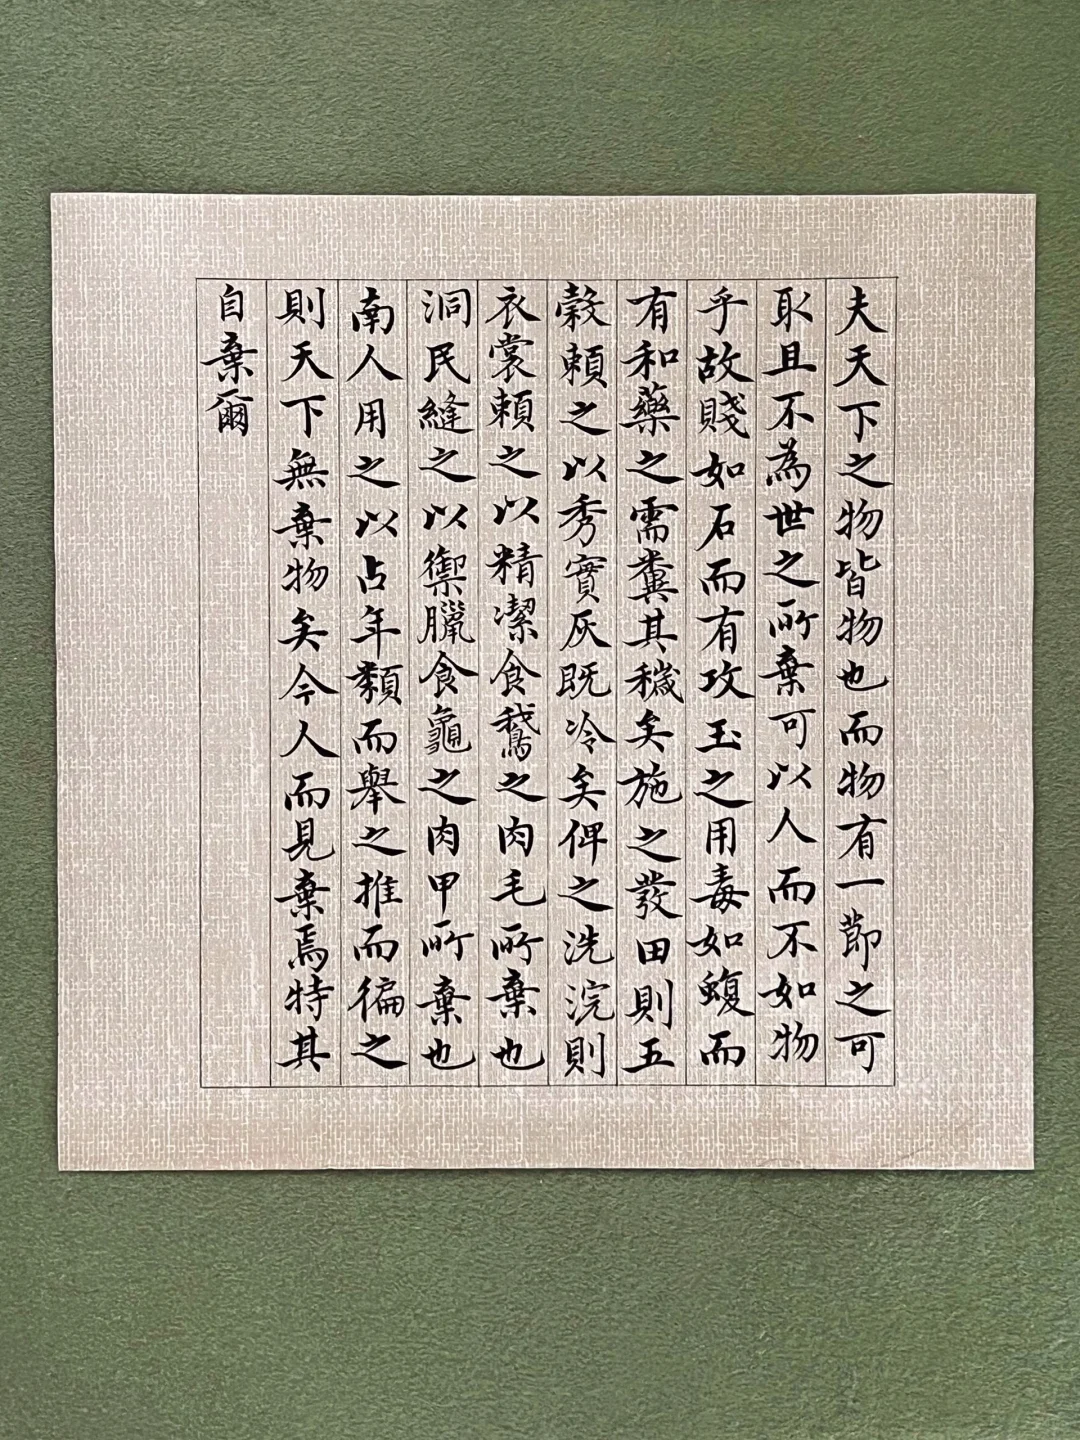 夫天下之物皆物也而物有一節之可
取且不為世之所棄可以人而不如物
乎故賤如石而有攻玉之用毒如蝮而
有和藥之需糞其穢矣施之發田則五
穀賴之以秀實灰既冷矣俾之洗浣則
衣裳賴之以精潔食鵝之肉毛所棄也
洞民縫之以禦臘食龜之肉甲所棄也
南人用之以占年類而舉之推而徧之
則天下無棄物矣今人而見棄焉特其
自棄爾